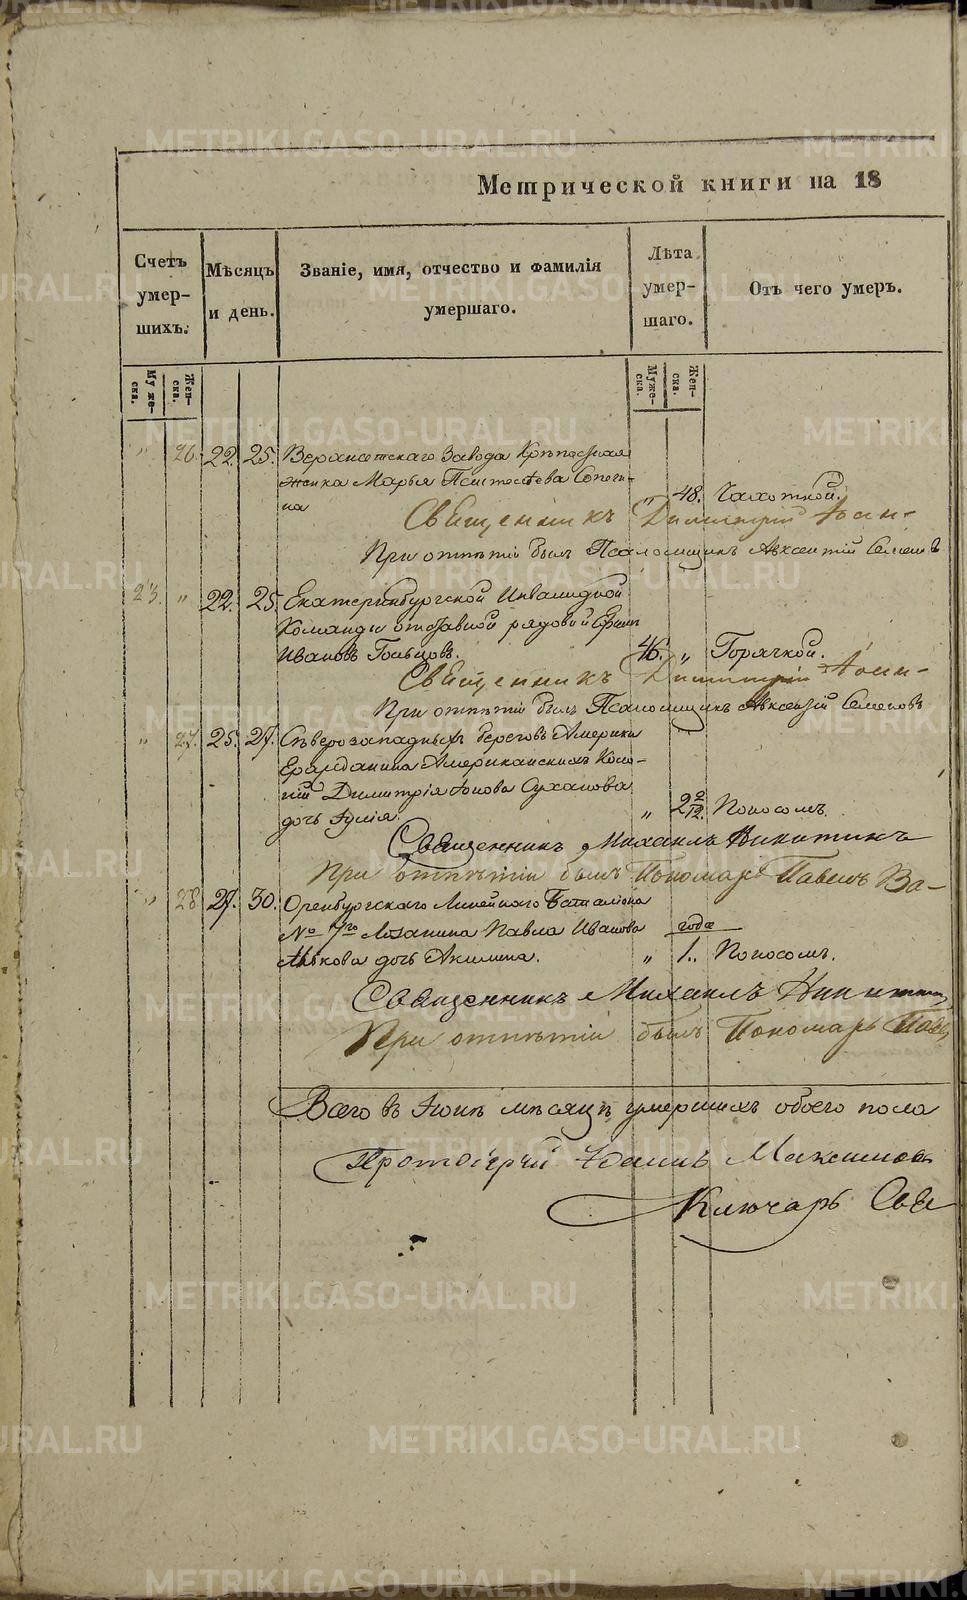 METRIKI.GASO-URAL.RU
Метрической книги на 18
Счетъ умер- шихъ.
Мѣсяцъ и день.
Званіе, имя, отчество и фамилія умершаго.
Лѣта умер- шаго.
Отъ чего умеръ.
Муже- ска.
Жен- ска.
Муже- ска.
Жен- ска.
" 26. 22. 25. Верхисетскаго Завода
женка Марья
на " 48. Чахоткой.
Священникъ Димитрій
При отпѣтіи былъ Псаломщикъ Авксентій Семеновъ
23. " 22. 25. Екатеринбургской Инвалидной
Команды отставной рядовой Ефимъ
Ивановъ 46. " Горячкой.
Священникъ Димитрій
При отпѣтіи былъ Псаломщикъ Авксентій Семеновъ
" 27. 25. 27. Сѣверозападныхъ береговъ Америки
Гражданина Американскихъ Коло-
ній Димитрія Іонова Суханова
дочь Іулія. " 2 2/12. Поносомъ.
Священникъ Михаилъ Никитинъ
При отпѣтіи былъ Пономарь Павелъ Ва-
" 28 27. 30. Оренбургскаго Линейнаго Баталіона
№ 7го Павла Иванова года
дочь Акилина. " 1.. Поносомъ.
Священникъ Михаилъ Никитинъ
При отпѣтіи былъ Пономарь Павелъ
Всего въ Іюнѣ мѣсяцѣ умершихъ обоего пола
Протоіерей Максимовъ
Ключарь Свя